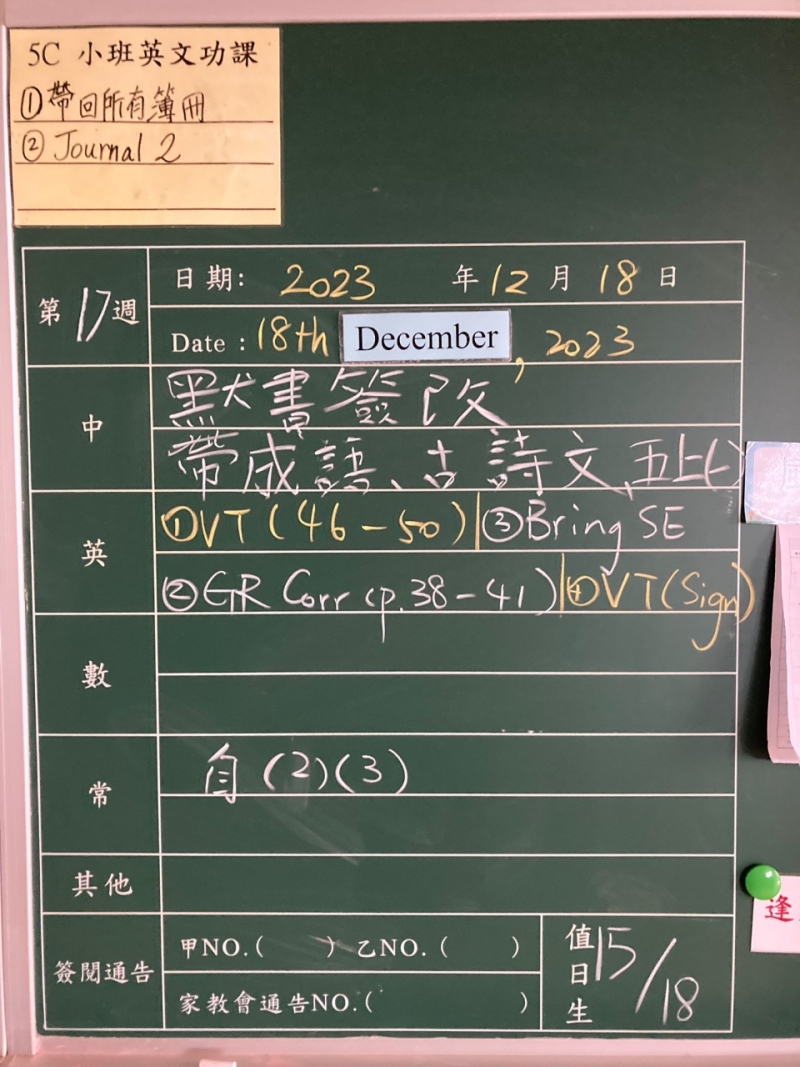 5C 小班英文功課
①帶回所有簿冊
② Journal 2
第17週
日期: 2023 年 12 月 18 日
Date : 18th December, 2023
中
默書簽改
帶成語、古詩文、五上(一)
英
①VT (46-50) ③Bring SE
②GR Corr (p.38-41) ④VT (Sign)
數
常
自 (2)(3)
其他
簽閱通告
甲NO.( ) 乙NO.( )
家教會通告NO.( )
值日生 15/18
逢